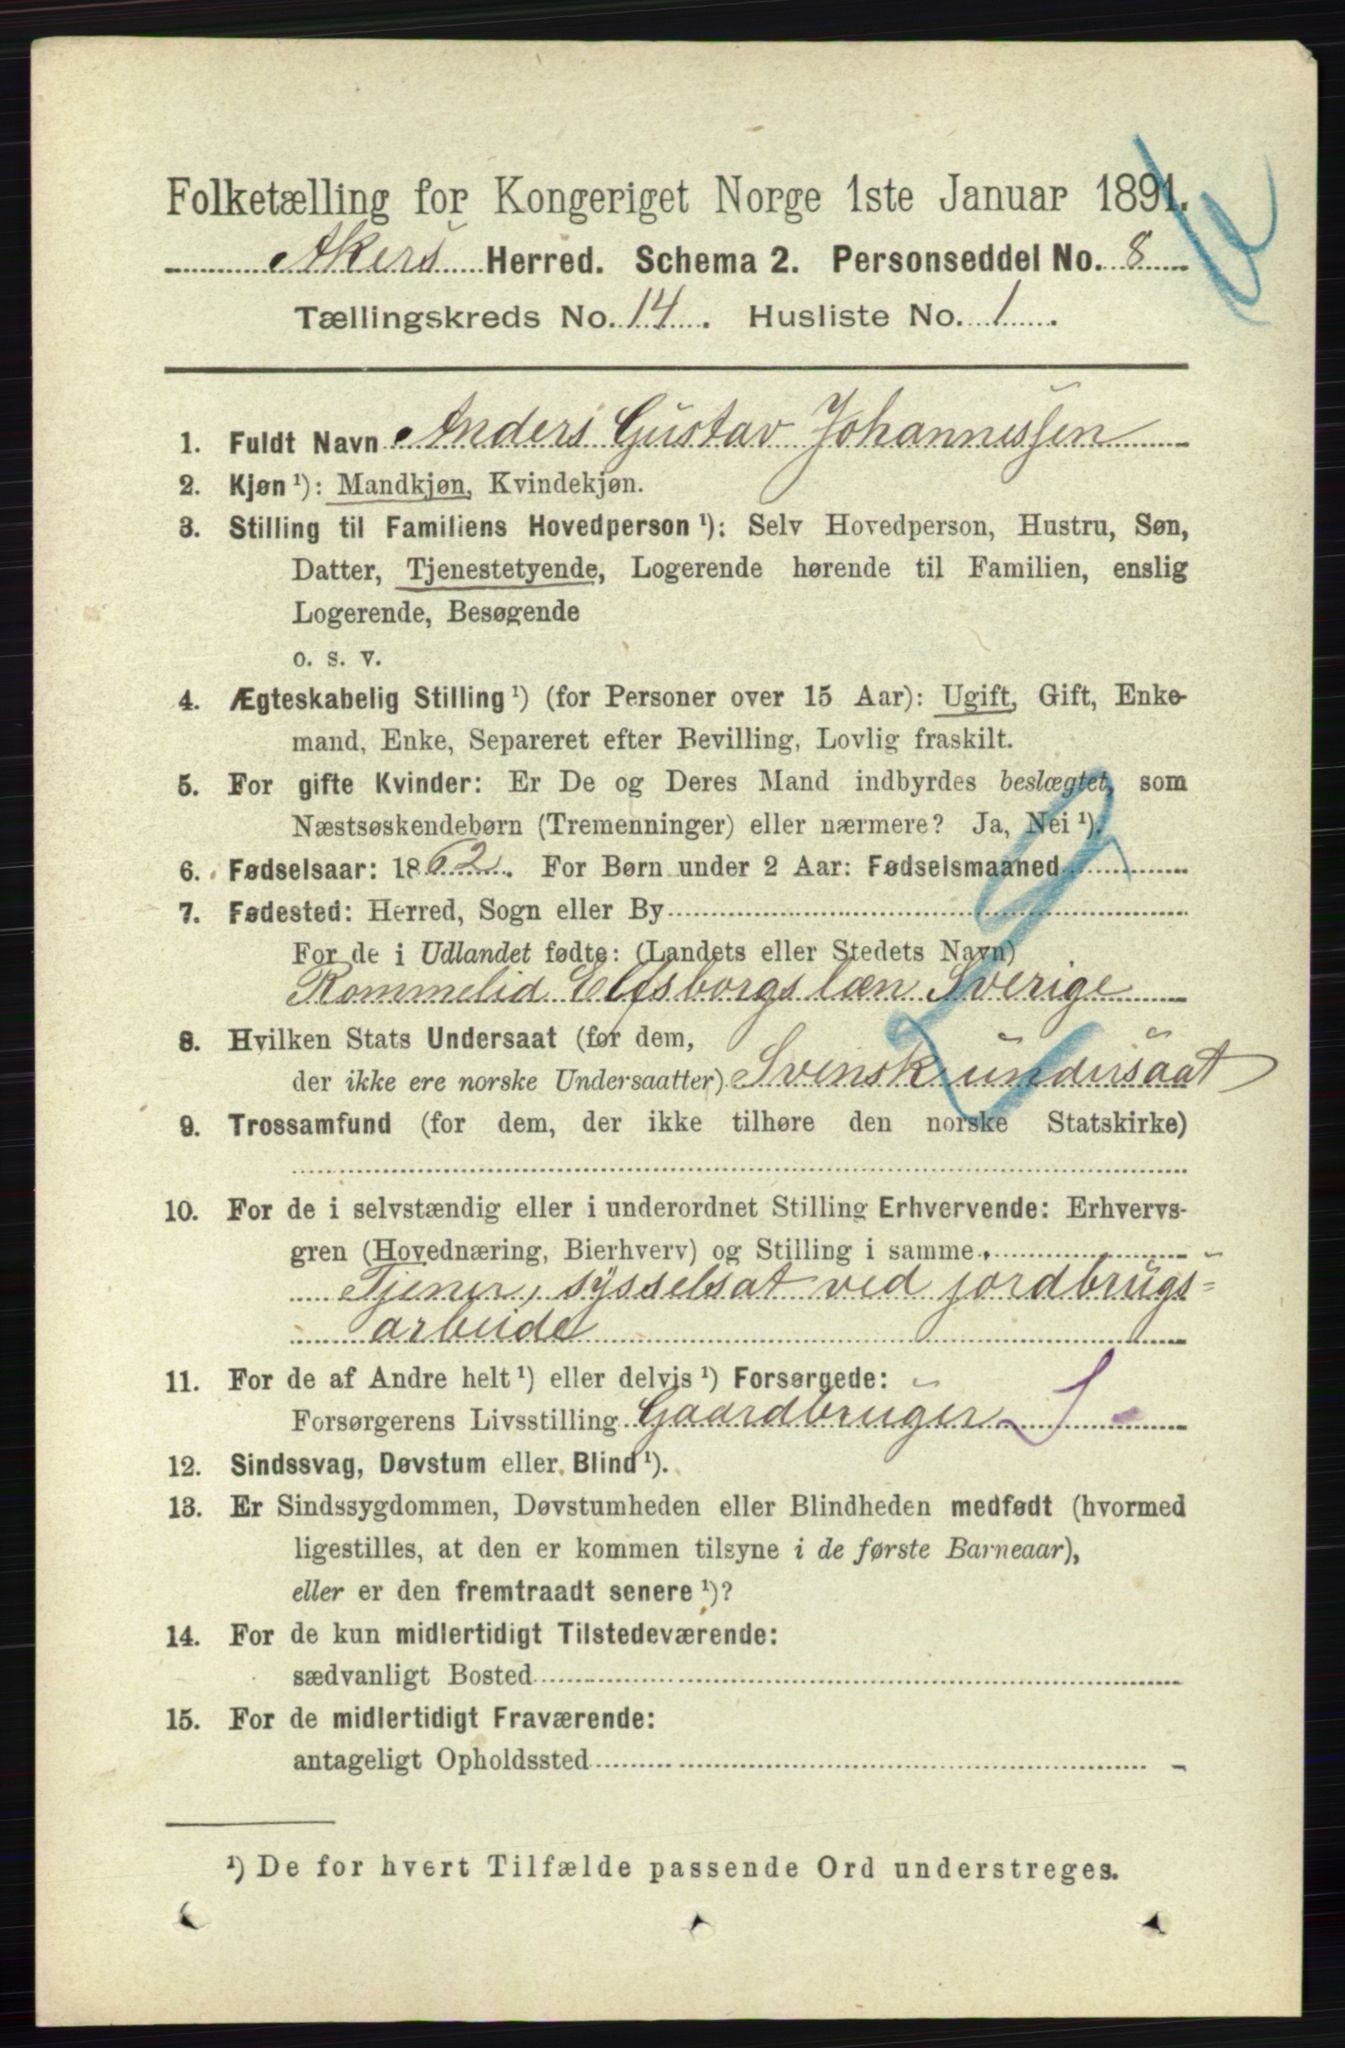 Folketælling for Kongeriget Norge 1ste Januar 1891.
Akers Herred. Schema 2. Personseddel No. 8
Tællingskreds No. 14. Husliste No. 1.
1. Fuldt Navn Anders Gustav Johannessen
2. Kjøn ¹): Mandkjøn, Kvindekjøn.
3. Stilling til Familiens Hovedperson ¹): Selv Hovedperson, Hustru, Søn,
Datter, Tjenestetyende, Logerende hørende til Familien, enslig
Logerende, Besøgende
o. s. v.
4. Ægteskabelig Stilling ¹) (for Personer over 15 Aar): Ugift, Gift, Enke-
mand, Enke, Separeret efter Bevilling, Lovlig fraskilt.
5. For gifte Kvinder: Er De og Deres Mand indbyrdes beslægtet, som
Næstsøskendebørn (Tremenninger) eller nærmere? Ja, Nei ¹).
6. Fødselsaar: 1862. For Børn under 2 Aar: Fødselsmaaned
7. Fødested: Herred, Sogn eller By
For de i Udlandet fødte: (Landets eller Stedets Navn)
Rommelid Elfsborgs læn Sverige
8. Hvilken Stats Undersaat (for dem,
der ikke ere norske Undersaatter) Svensk undersaat
9. Trossamfund (for dem, der ikke tilhøre den norske Statskirke)
10. For de i selvstændig eller i underordnet Stilling Erhvervende: Erhvervs-
gren (Hovednæring, Bierhverv) og Stilling i samme.
Tjener, sysselsat ved jordbrugs-
arbeide
11. For de af Andre helt ¹) eller delvis ¹) Forsørgede:
Forsørgerens Livsstilling Gaardbruger
12. Sindssvag, Døvstum eller Blind ¹).
13. Er Sindssygdommen, Døvstumheden eller Blindheden medfødt (hvormed
ligestilles, at den er kommen tilsyne i de første Barneaar),
eller er den fremtraadt senere ¹)?
14. For de kun midlertidigt Tilstedeværende:
sædvanligt Bosted
15. For de midlertidigt Fraværende:
antageligt Opholdssted
¹) De for hvert Tilfælde passende Ord understreges.